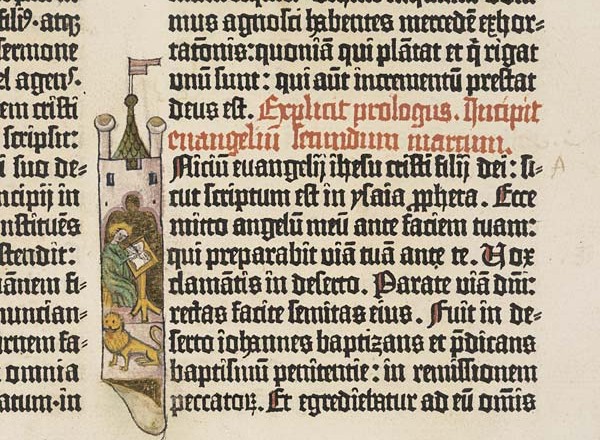 filiꝰ. atqꝫ
sermone
el agens.
em cristi
scripsit:
i suo de-
ncipij in
nstituēs
stendit:
ānem fi-
nuncian-
rnem fa-
omnia
atum·in
mus agnosci habentes mercedē exhor-
tatōnis: quoniā qui plātat et q̇ rigat
unū sunt: qui aūt incrementū prestat
deus est. Explicit prologus. Incipit
euangeliū secundum marcum.
Niciū euangelij ihesu cristi filij dei: si-
cut scriptum est in ysaia ꝓpheta. Ecce
mitto angelū meū ante faciem tuam:
qui preparabit viā tuā ante te. Vox
clamātis in deserto. Parate viā dnī:
rectas facite semitas eius. Fuit in de-
serto iohannes baptizans et p̄dicans
baptismū penitentie: in remissionem
peccatoꝝ. Et egrediebatur ad eū om̄is
A